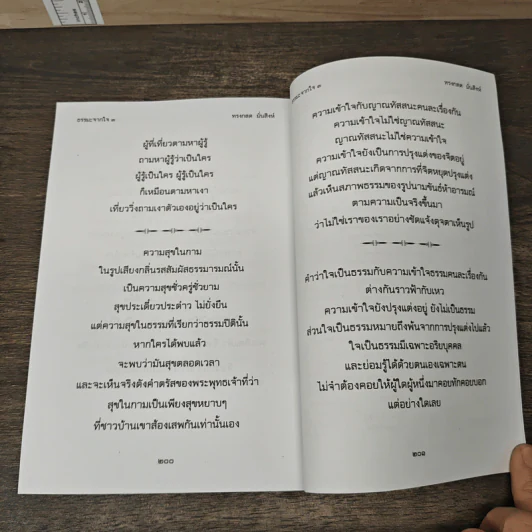 ธรรมะจากใจ ๓
ทรงกลด ปั้นสิงห์
ผู้ที่เที่ยวตามหาผู้รู้
ถามหาผู้รู้ว่าเป็นใคร
ผู้รู้เป็นใคร ผู้รู้เป็นใคร
ก็เหมือนตามหาเงา
เที่ยววิ่งถามเงาตัวเองอยู่ว่าเป็นใคร
ความสุขในกาม
ในรูปเสียงกลิ่นรสสัมผัสธรรมารมณ์นั้น
เป็นความสุขชั่วครู่ชั่วยาม
สุขประเดี๋ยวประด๋าว ไม่ยั่งยืน
แต่ความสุขในธรรมที่เรียกว่าธรรมปีตินั้น
หากใครได้พบแล้ว
จะพบว่ามันสุขตลอดเวลา
และจะเห็นจริงดังคำตรัสของพระพุทธเจ้าที่ว่า
สุขในกามเป็นเพียงสุขหยาบๆ
ที่ชาวบ้านเขาส้องเสพกันเท่านั้นเอง
๒๐๐
ธรรมะจากใจ ๓
ทรงกลด ปั้นสิงห์
ความเข้าใจกับญาณทัสสนะคนละเรื่องกัน
ความเข้าใจไม่ใช่ญาณทัสสนะ
ญาณทัสสนะไม่ใช่ความเข้าใจ
ความเข้าใจยังเป็นการปรุงแต่งของจิตอยู่
แต่ญาณทัสสนะเกิดจากการที่จิตหยุดปรุงแต่ง
แล้วเห็นสภาพธรรมของรูปนามขันธ์ห้าอารมณ์
ตามความเป็นจริงขึ้นมา
ว่าไม่ใช่เราของเราอย่างชัดแจ้งดุจตาเห็นรูป
คำว่าใจเป็นธรรมกับความเข้าใจธรรมคนละเรื่องกัน
ต่างกันราวฟ้ากับเหว
ความเข้าใจยังปรุงแต่งอยู่ ยังไม่เป็นธรรม
ส่วนใจเป็นธรรมหมายถึงพ้นจากการปรุงแต่งไปแล้ว
ใจเป็นธรรมมีเฉพาะอริยบุคคล
และย่อมรู้ได้ด้วยตนเองเฉพาะตน
ไม่จำต้องคอยให้ผู้ใดผู้หนึ่งมาคอยทักคอยบอก
แต่อย่างใดเลย
๒๐๑